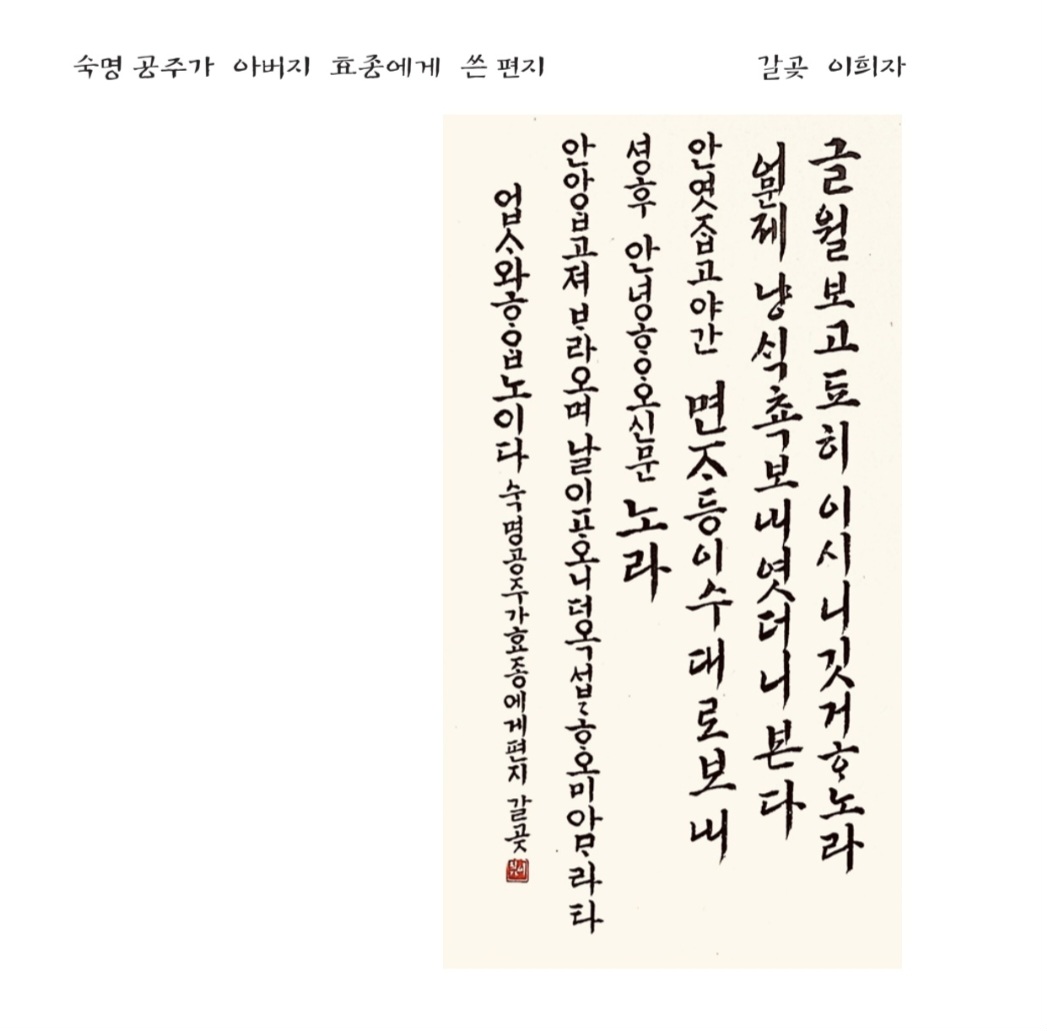 숙명 공주가 아버지 효종에게 쓴 편지
갈곶 이희자
글월보고됴히이시니깃거ᄒᆞ노라
어문제 냥ᄉᆡᆨ쵹보내엿더니본다
안엿ᄌᆞᆸ고야간 면ᄌᆞ등이수대로보내
셩후 안녕ᄒᆞᄋᆞ오신문 노라
안앙ᄋᆞᆸ고져 ᄇᆞ라오며날이포오니더옥섭〻ᄒᆞ오미아ᄆᆞ라타
업ᄉᆞ와ᄒᆞᄋᆞᆸ노이다 숙명공주가효종에게편지 갈곶